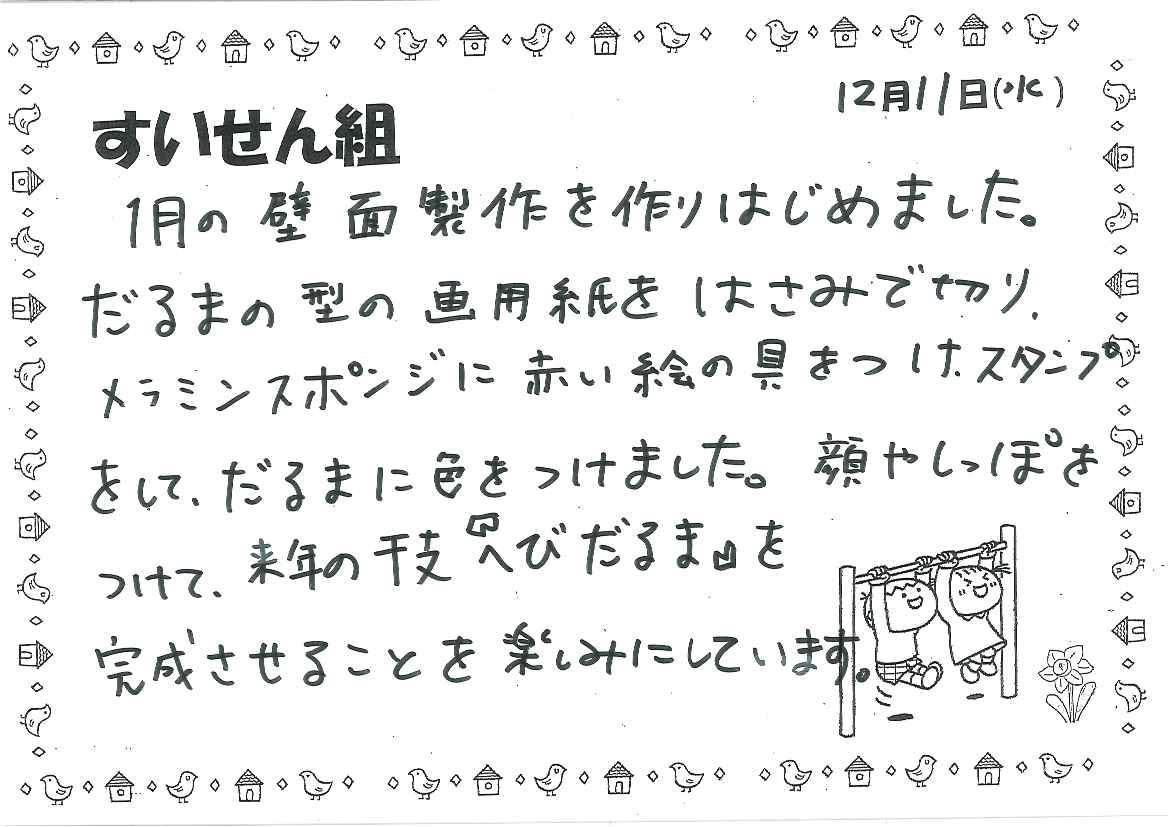 12月11日(水)
すいせん組
1月の壁面製作を作りはじめました。
だるまの型の画用紙をはさみで切り、
メラミンスポンジに赤い絵の具をつけ、スタンプ
をして、だるまに色をつけました。顔やしっぽを
つけて、来年の干支『へびだるま』を
完成させることを楽しみにしています。